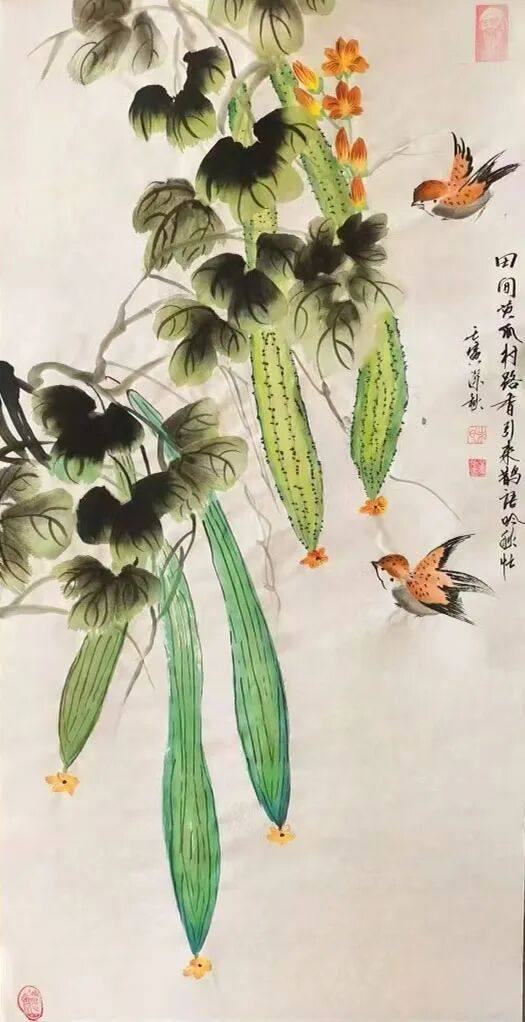 田间黄瓜村路香引来鹊语吟秋忙
壬寅深秋